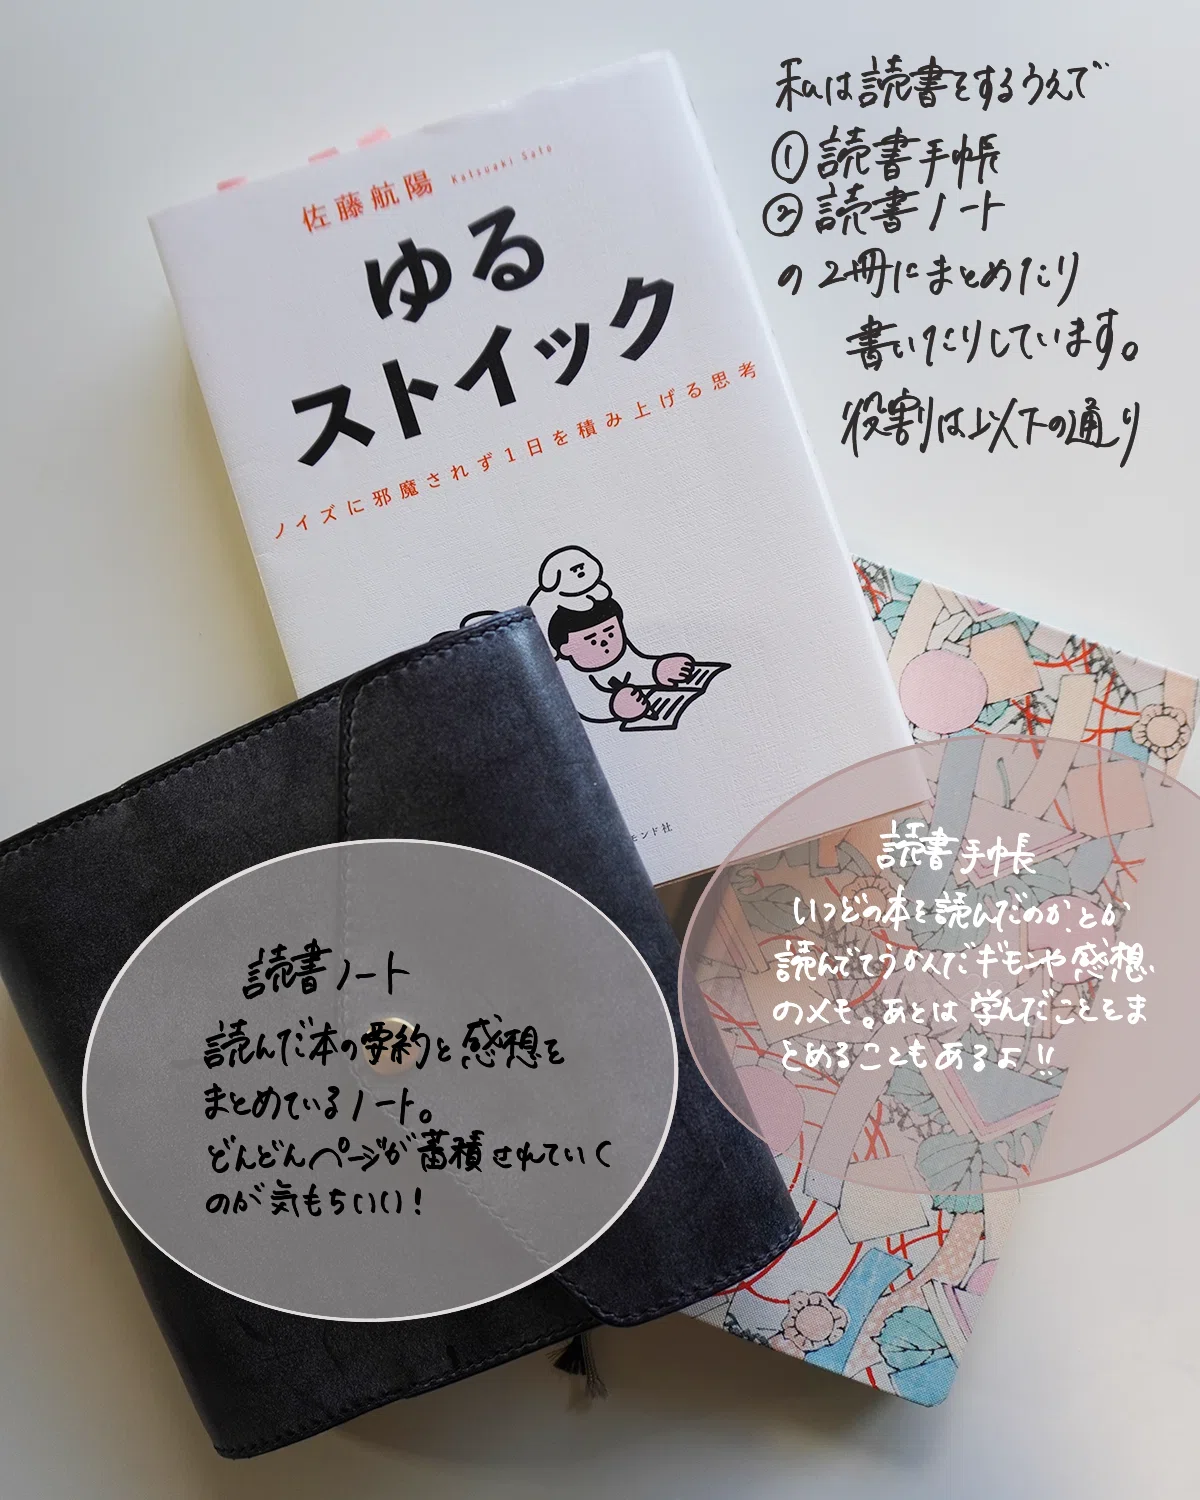 私は読書をするうえで
①読書手帳
②読書ノート
の2冊にまとめたり
書いたりしています。
役割は以下の通り
佐藤航陽 Katsuaki Sato
ゆる
ストイック
ノイズに邪魔されず1日を積み上げる思考
モンド社
読書手帳
いつどの本を読んだのか、とか
読んでてうかんだギモンや感想
のメモ。あとは学んだことをま
とめることもあるよ!!
読書ノート
読んだ本の要約と感想を
まとめているノート。
どんどんページが蓄積されていく
のが気もちいい!